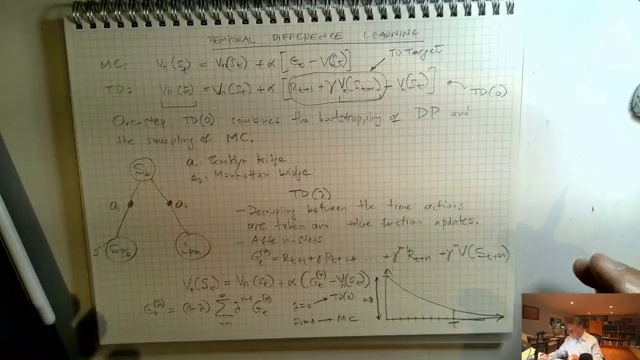 TEMPORAL DIFFERENCE LEARNING
MC: Vπ(St) = Vπ(St) + α [Gt - V(St)]
TD Target
TD: Vπ(St) = Vπ(St) + α [Rt+1 + γ Vπ(St+1) - Vπ(St)]
TD(0)
One-step TD(0) combines the bootstrapping of DP and
the sampling of MC.
a1: Brooklyn bridge
a2: Manhattan bridge
S0
a1
a2
S'
TD(λ)
- Decoupling between the time actions
are taken and value function updates.
- After n-steps
Gt(n) = Rt+1 + γ Rt+2 + γ Rt+n + γn V(St+n)
Vπ(St) = Vπ(St) + α (Gt(n) - Vπ(St))
Gt(λ) = (1-λ) Σ n=1 λn-1 Gt(n)
λ=0 → TD(0)
λ=1 → MC
1-λ
T